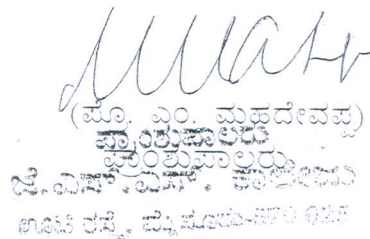 (ಪ್ರೊ. ಎಂ. ಮಹದೇವಪ್ಪ)
ಪ್ರಾಂಶುಪಾಲರು
ಪ್ರಾಂಶುಪಾಲರು
ಜೆ.ಎಸ್.ಎಸ್. ಕಾಲೇಜು
ಊಟಿ ರಸ್ತೆ, ಮೈಸೂರು-570 025